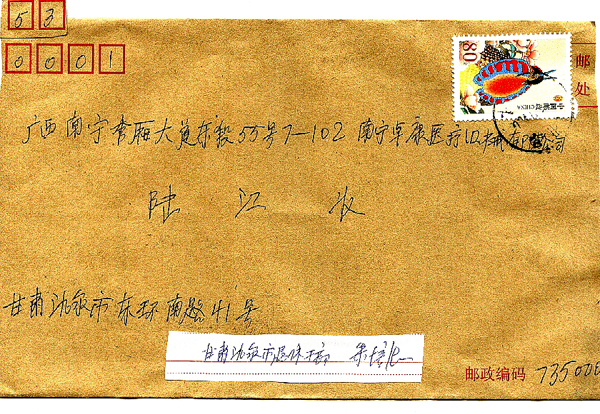 53
0001
80
中国邮政 CHINA
邮
处
广西南宁 大 东段55号7-102 南宁卓康医疗 有限公司
陆 江
甘肃酒泉市东环南路41号
甘肃酒泉市
邮政编码 735000